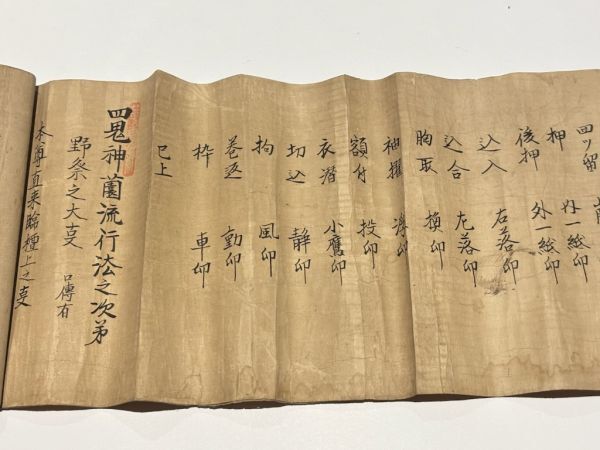 四ツ留
押 一紙印
後押 外一紙印
込入 右落印
込合 左落印
胸取 印
袖 浮印
額付 投印
衣潜 小鷹印
切込 静印
拘 風印
巻返 動印
枠 車印
已上
四鬼神薗流行法之次第
野祭之大叓 口傳有
本尊直来臨壇上之叓